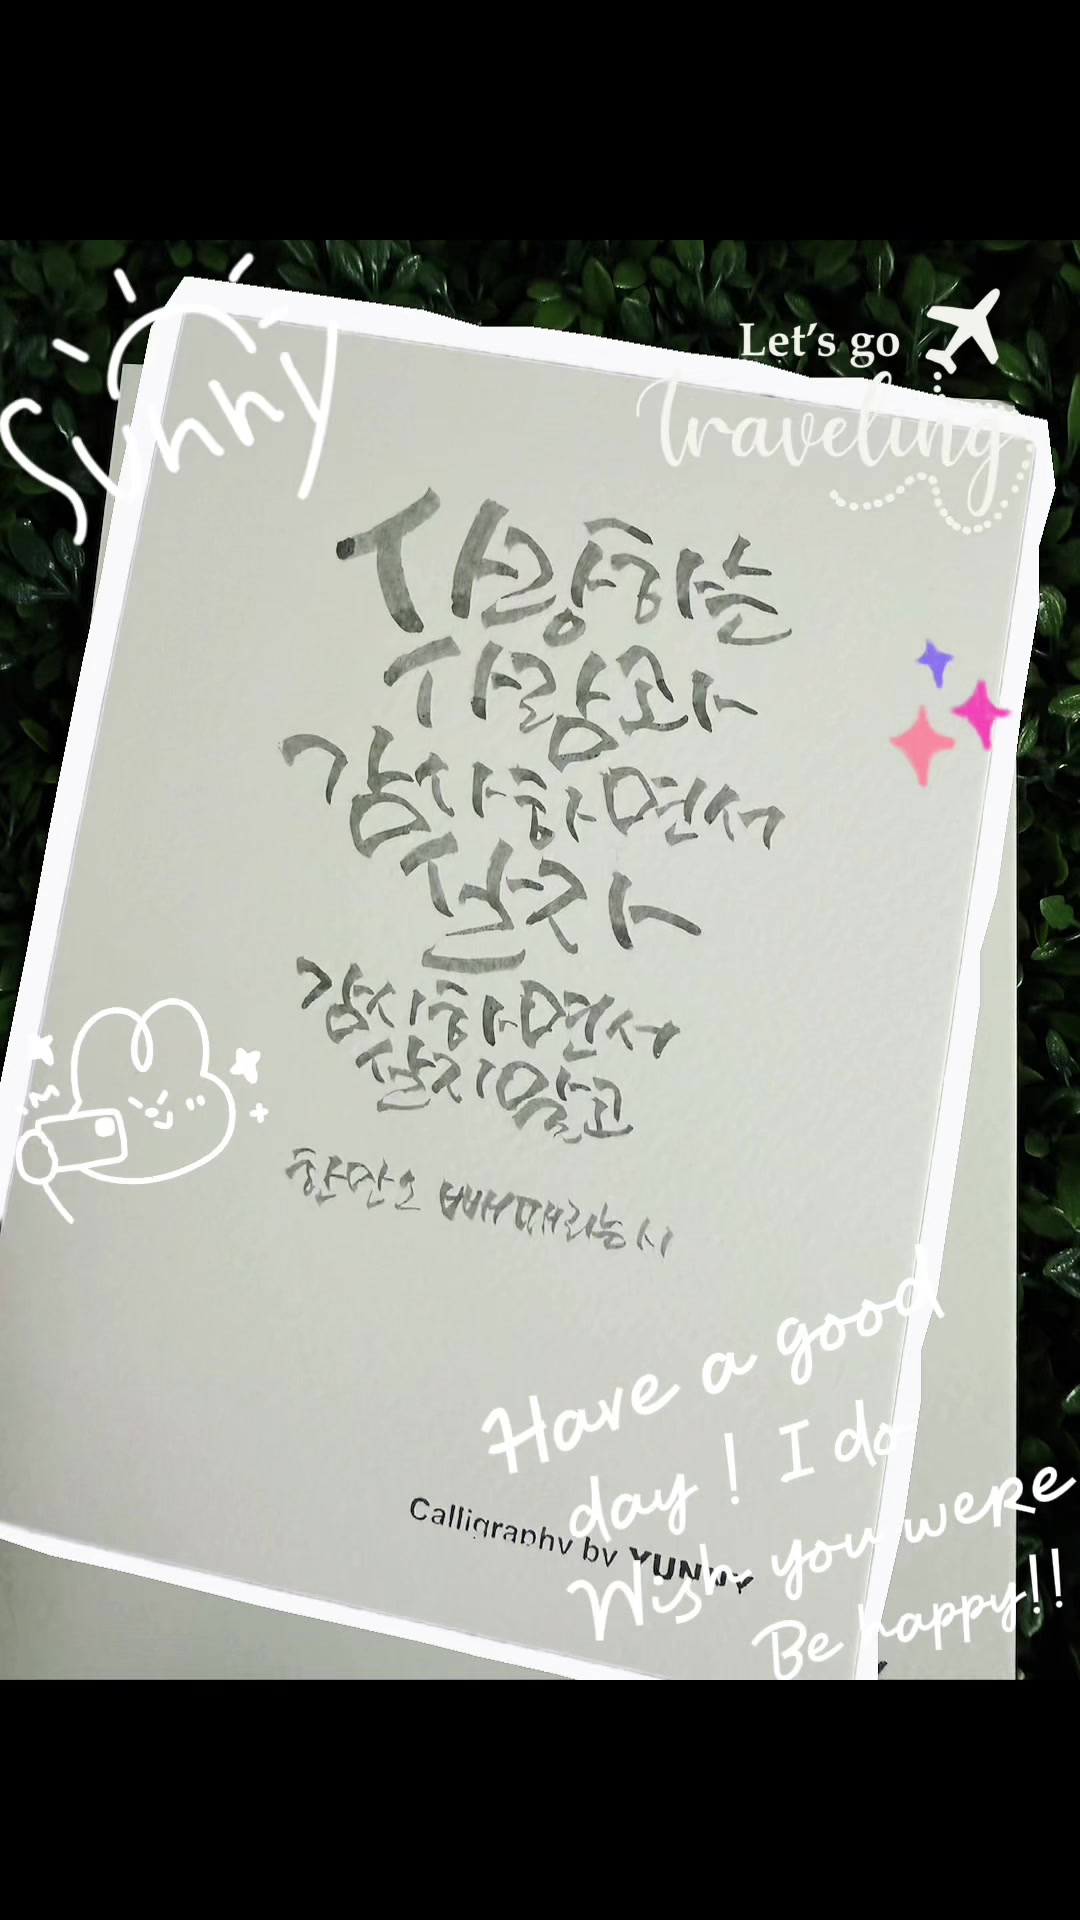 Sunny
Let's go
traveling
사랑하는
사람과
감사하면서
살자
감사하면서
살지말고
한만소 빼때라농시
Have a good
day! I do
Wish you were
Be happy!!
Calligraphy by YUNNY